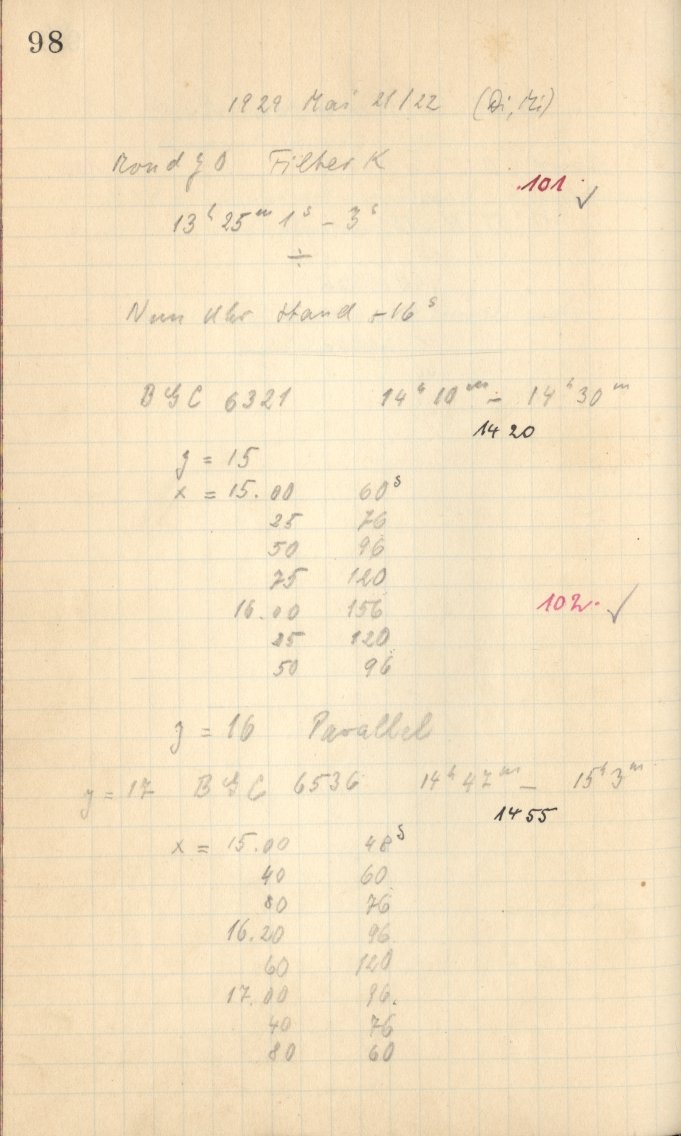 98
1929 Mai 21/22 (Di, Mi)
Mond Filter K
101 ✓
13h 25m 1s - 3s
÷
Nun Uhr Stand -16s
BGC 6321 14h 10m - 14h 30m
14 20
y = 15
x = 15.00 60s
25 76
50 96
75 120
16.00 156
102. ✓
25 120
50 96
y = 16 Parallel
y = 17 BGC 6536 14h 47m - 15h 3m
14 55
x = 15.00 48s
40 60
80 76
16.20 96
60 120
17.00 96.
40 76
80 60